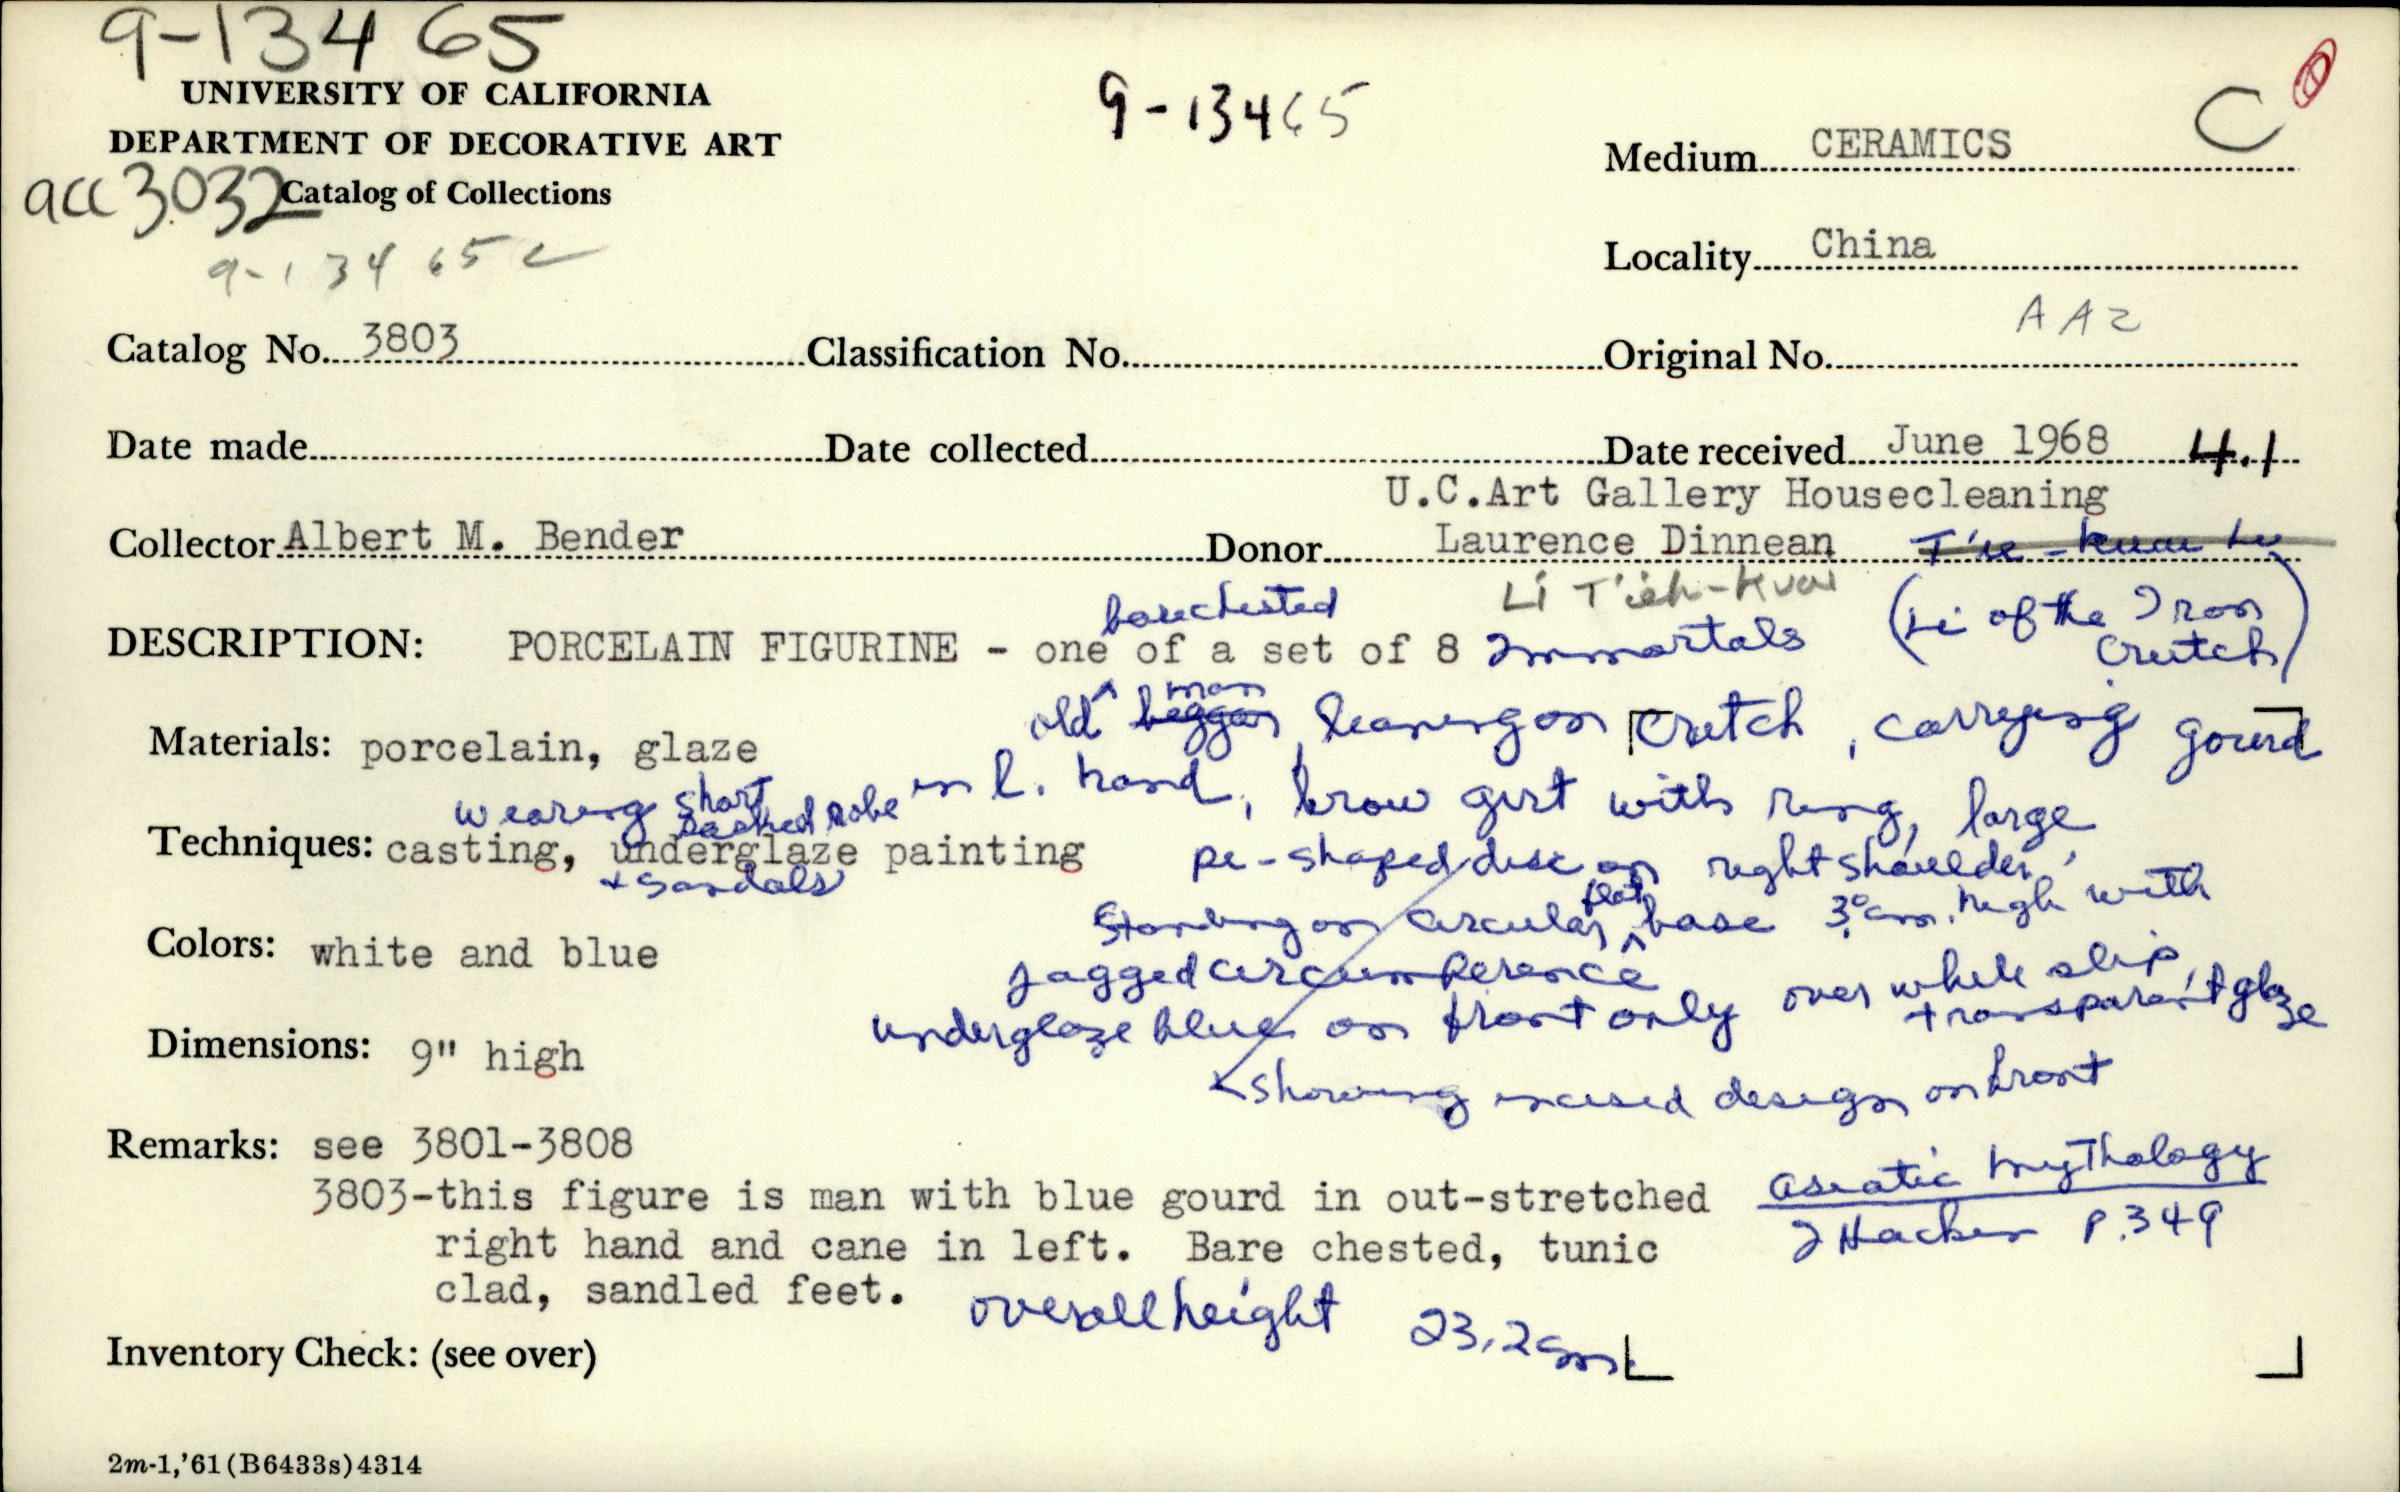 9-13465
UNIVERSITY OF CALIFORNIA
DEPARTMENT OF DECORATIVE ART
acc 3032 Catalog of Collections
9-13465c
9-13465
C
Medium CERAMICS
Locality China
AA2
Catalog No. 3803 Classification No. Original No.
Date made Date collected Date received June 1968 4.1
U.C.Art Gallery Housecleaning
Collector Albert M. Bender Donor Laurence Dinnean
barechested Li T'ieh-Kuai (Li of the Iron Crutch)
DESCRIPTION: PORCELAIN FIGURINE - one of a set of 8 Immortals
old ^ beggar man, leaning on crutch, carrying gourd
Materials: porcelain, glaze
in l. hand, brow girt with ring, large
wearing short sashed robe
Techniques: casting, underglaze painting
+ sandals
pi-shaped disc on right shoulder,
standing on circular ^ flat base 3 cm. high with
Colors: white and blue
jagged circumference
underglaze blue on front only over white slip, transparent glaze
Dimensions: 9" high
showing incised design on front
Remarks: see 3801-3808
3803-this figure is man with blue gourd in out-stretched
right hand and cane in left. Bare chested, tunic
clad, sandled feet.
Asiatic Mythology
J Hackin P.349
overall height 23.2 cm.
Inventory Check: (see over)
2m-1,'61(B6433s)4314